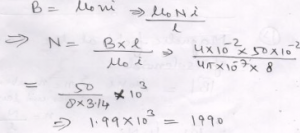 B = μ₀ni ⇒ μ₀Ni/l
⇒ N = B×l/μ₀i ⇒ 4×10⁻²×50×10⁻²/4π×10⁻⁷×8
= 50/8×3.14 × 10³
⇒ 1.99×10³ = 1990